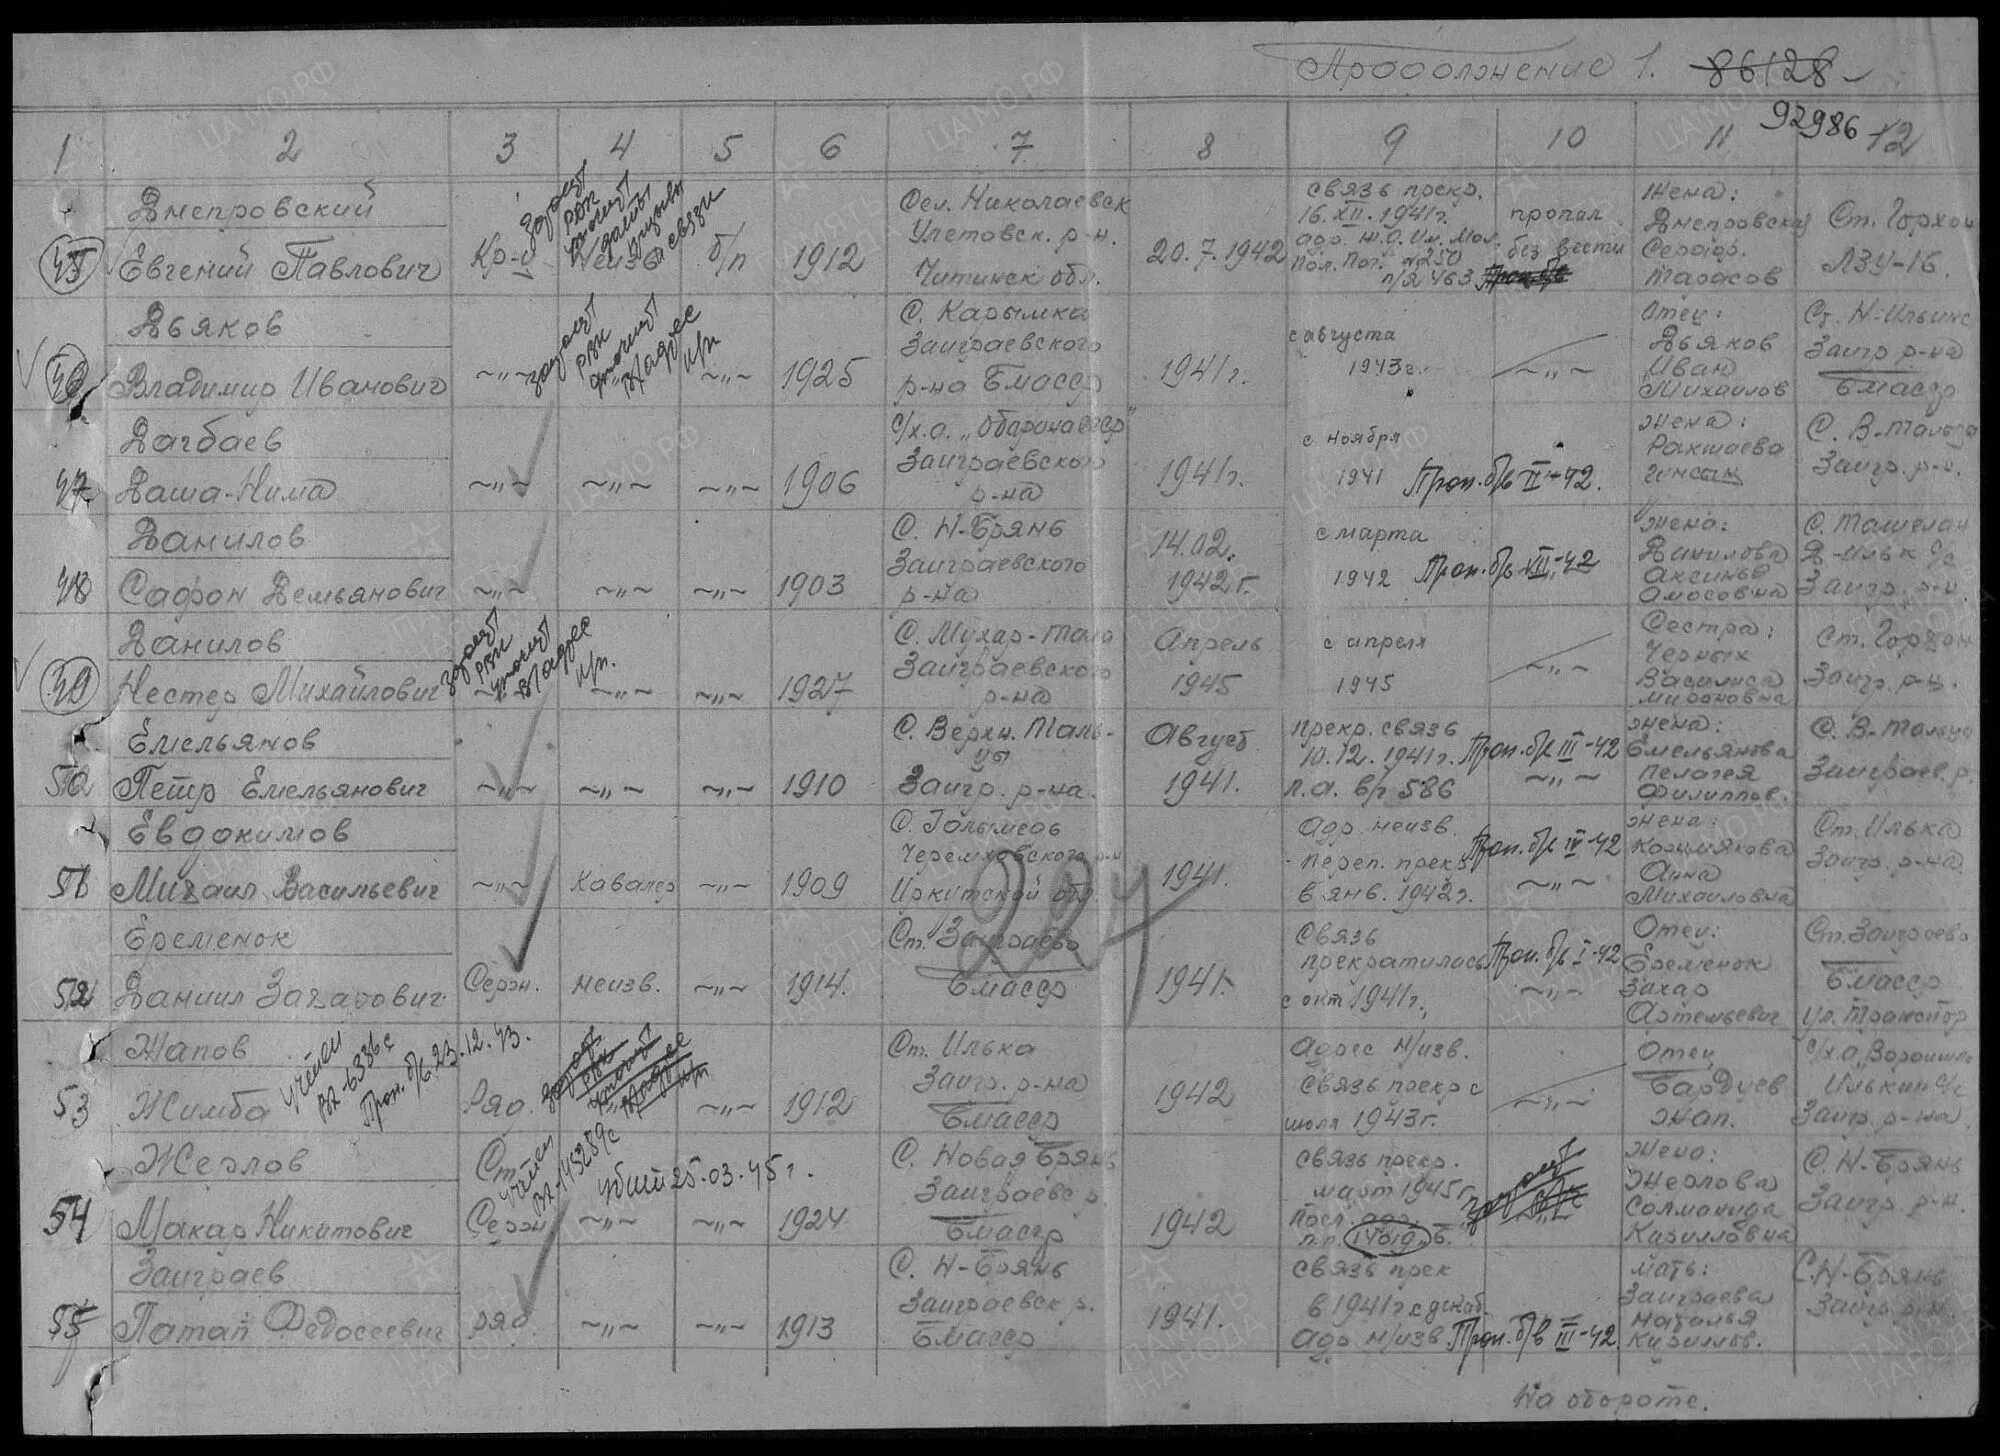 Продолжение 1. 86128
92986
1 2 3 4 5 6 7 8 9 10 11 12
45 Днепровский
Евгений Павлович
Кр-ц
Неизв
б/п
1912
Николаевск
Улетовск. р-н.
Читинск обл.
20.7.1942
связь прекр.
16.XII.1941г.
№250
п/я 463
пропал
без вести
Жена:
Днепровская
Тарасов
Ст. Горхон
ЛЗУ-16.
46 Дьяков
Владимир Иванович
~"~
~"~
1925
С. Карымка
Заиграевского
р-на БМАССР
1941г.
с августа
1943г.
~"~
Отец:
Дьяков
Иван
Михайлов
Ст. Н-Ильинс
Заигр р-на
БМАССР
47 Дагбаев
Даша-Нима
~"~
~"~
~"~
1906
Заиграевского
р-на
1941г.
с ноября
1941
Проп. б/в II-42.
Жена:
Ракшаева
С. В-Тальцы
Заигр. р-н.
48 Данилов
Сафон Демьянович
~"~
~"~
~"~
1903
С. Н-Брянь
Заиграевского
р-на
14.02.
1942г.
с марта
1942
Проп. б/в VIII-42
Жена:
Данилова
Аксинья
Амосовна
С. Ташелан
Заигр. р-н.
49 Данилов
Нестер Михайлович
~"~
~"~
~"~
1927
С. Мухор-Тала
Заиграевского
р-на
Апрель
1945
с апреля
1945
~"~
Сестра:
Черных
Василиса
Мироновна
Ст. Горхон
Заигр. р-н.
50 Емельянов
Петр Емельянович
~"~
~"~
~"~
1910
С. Верхн. Таль-
цы
Заигр. р-на.
Август
1941.
прекр. связь
10.12.1941г.
п.а. в/г 586
Проп. б/в III-42
~"~
жена:
Емельянова
Пелагея
Филиппов.
С. В-Тальцы
Заиграев. р.
51 Евдокимов
Михаил Васильевич
~"~
Кавалер
~"~
1909
С. Голыметь
Черемховского р-н
Иркутской обл.
1941.
Адр. неизв.
переп. прекр
в янв. 1942г.
Проп. б/в IV-42
~"~
Жена:
Кормякова
Анна
Михайловна
Ст. Илька
Заигр. р-на
224
52 Еременок
Даниил Захарович
Серж.
неизв.
~"~
1914.
Ст. Заиграево
БМАССР
1941.
Связь
прекратилась
с окт 1941г.,
Проп. б/в I-42
~"~
Отец:
Еременок
Захар
Артемьевич
Ст. Заиграево
БМАССР
ул. Транспор
53 Жапов
Жимба
учтен
вх-6336с
Проп. б/в 23.12.43.
Ряд.
~"~
1912
Ст. Илька
Заигр. р-на
БМАССР
1942
Адрес н/изв.
связь прекр с
июля 1943г.
~"~
Отец
Бардуев
Жап.
Заигр. р-на
54 Жерлов
Макар Никитович
Ст.
Серж
учтен
вх-145289с
убит 25.03.45г.
~"~
~"~
1924
С. Новая Брянь
Заиграевс р.
БМАССР
1942
связь прекр.
март 1945г.
посл. адр.
Жена:
Жерлова
Соломонида
Кирилловна
С. Н-Брянь
Заигр. р-н.
55 Заиграев
Патап Федосеевич
ряд.
~"~
~"~
1913
С. Н-Брянь
Заиграевск р.
БМАССР
1941.
связь прек
в 1941г. с декаб.
адр. н/изв
Проп. б/в III-42
мать:
Заиграева
Наталья
Кириллов.
С. Н-Брянь
Заигр. р-н.
На обороте.